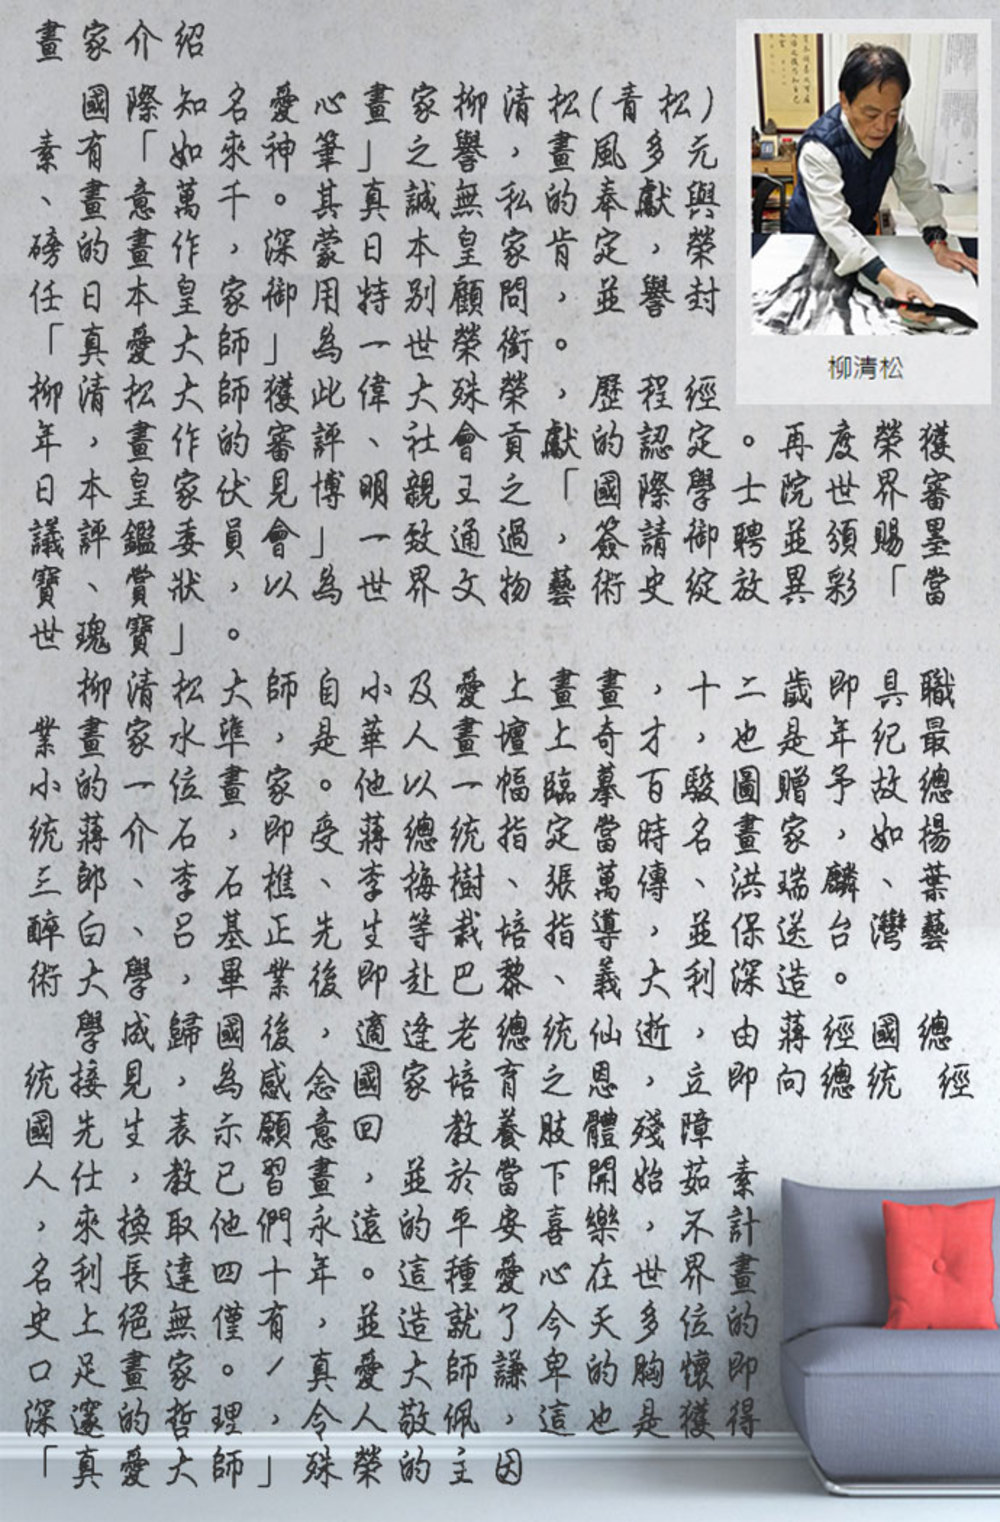 畫家介紹
國際知名愛心畫家柳清松(青松)
素有「如來神筆」之譽，畫風多元
、畫意萬千。其真誠無私的奉獻與
磅的畫作，深蒙日本皇家肯定，榮
任日本皇家御用特別顧問，並譽封
「真愛大師」為一世榮銜。
柳清松大師獲此偉大殊榮，歷程經
年，畫作的審評、社會貢獻的認定。再度榮獲
日本皇家伏見博明親王之「國際學士院世界審
議評鑑委員會」一致通過，簽請御聘並頒賜墨
寶、賞狀，以為世界文物藝術史綻放異彩「當
世瑰寶」。
柳清松大師自小及愛上畫畫，十二歲即具職
業畫家水準，是華人畫壇上奇才，也是年紀最
小的一位畫家。他以一幅臨摹百駿圖贈予故總
統蔣介石，即受蔣總統指定當時名畫家，如楊
三郎、李石樵、李梅樹、張萬傳、洪瑞麟、葉
醉白、呂基正先生等栽培指導，並保送台灣藝
術大學，畢業後即赴巴黎、義大利深造。
學成歸國後，適逢老總統仙逝，由蔣經國總
統接見，為感念國家培育之恩，立即向總統 經
國先生表示願意回 教養肢體殘障
人仕，教已習畫，並於當下開始茹素
，來換取他們永遠的平安喜樂，不計
名利長達四十年。這種愛心在世界畫
史上絕無僅有，並造就了今天多位的
口足畫家。/真愛大師謙卑的胸懷即
深邃的哲理，令人敬佩，這也是獲得
「真愛大師」殊榮的主因
柳清松